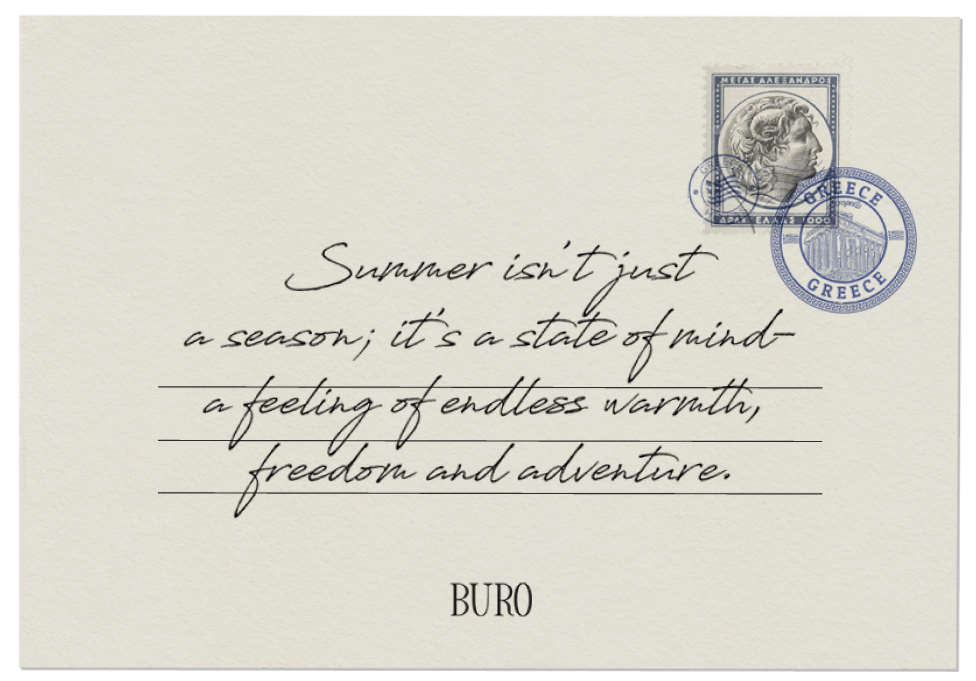 ΜΕΓΑΣ ΑΛΕΞΑΝΔΡΟΣ
GREECE
ΔΡΑΧ. ΕΛΛΑΣ 1000
GREECE
GREECE
Summer isn't just
a season; it's a state of mind-
a feeling of endless warmth,
freedom and adventure.
BURO